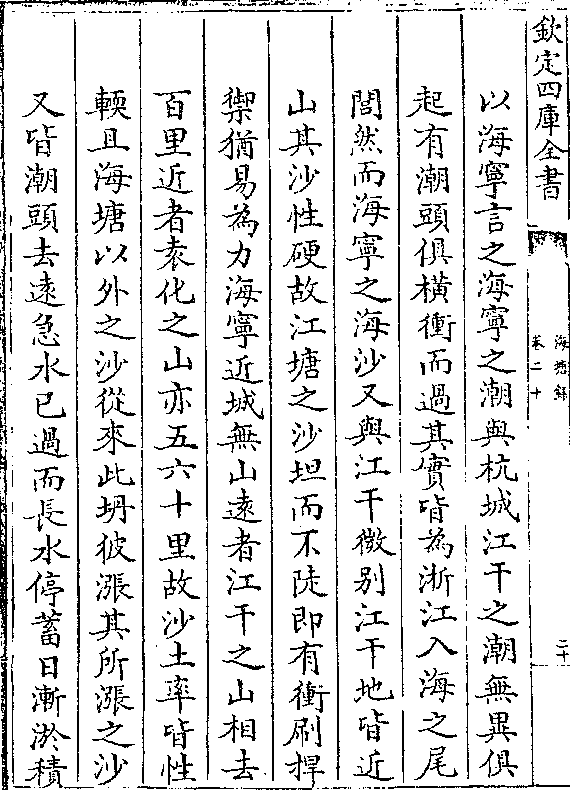 欽定四庫全書
海塘録
卷二十
二十
以海寧言之海寧之潮與杭城江干之潮無異俱
起有潮頭俱橫衝而過其實皆為浙江入海之尾
閭然而海寧之海沙又與江干微别江干地皆近
山其沙性硬故江塘之沙坦而不陡即有衝刷捍
禦猶易為力海寧近城無山遠者江干之山相去
百里近者袁化之山亦五六十里故沙土率皆性
輭且海塘以外之沙從來此坍彼漲其所漲之沙
又皆潮頭去遠急水已過而長水停蓄日漸淤積